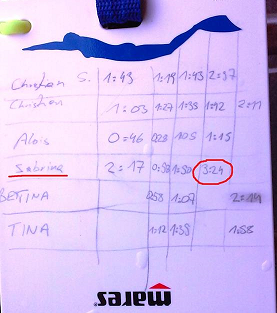 Christian S. 1:43 1:19 1:43 2:37
Christian 1:03 1:27 1:38 1:42 2:11
Alois 0=46 1:15
Sabrina 2=17 0:58 1:30 3:24
BETTINA 0:58 1:07
TINA 1:12 1:38 1:58
mares